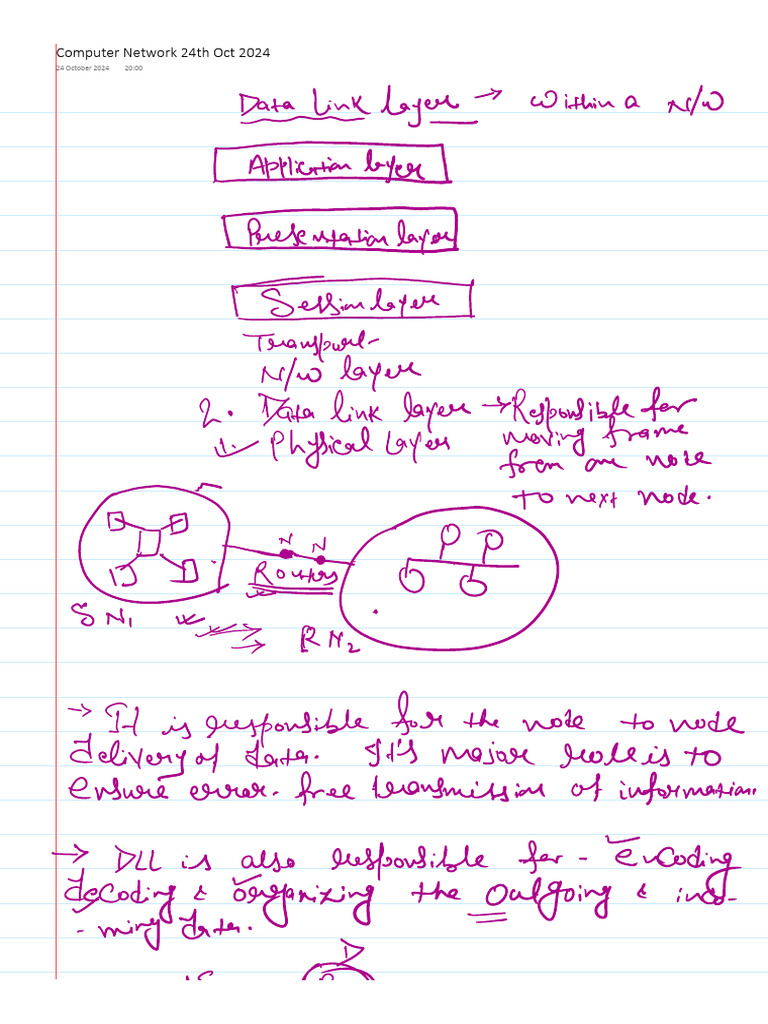 Computer Network 24th Oct 2024
24 October 2024 20:00
Data Link layer → within a N/W
Application layer
Presentation layer
Session layer
Transport
N/W layer
2. Data link layer → Responsible for
moving frame
1. Physical Layer
from one node
to next node.
N N
Routers
S N1
R N2
→ It is responsible for the node to node
delivery of data. It's major role is to
ensure error-free transmission of information.
→ DLL is also responsible for - encoding
decoding & organizing the outgoing & inco-
-ming data.